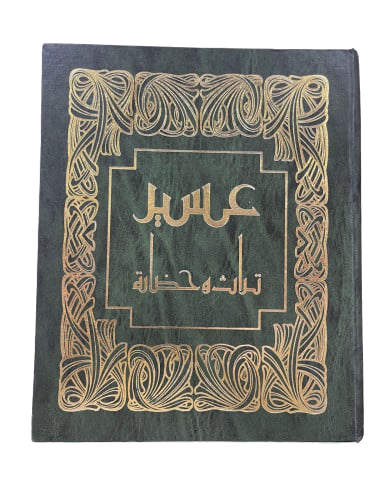 عسير
تراث وحضارة